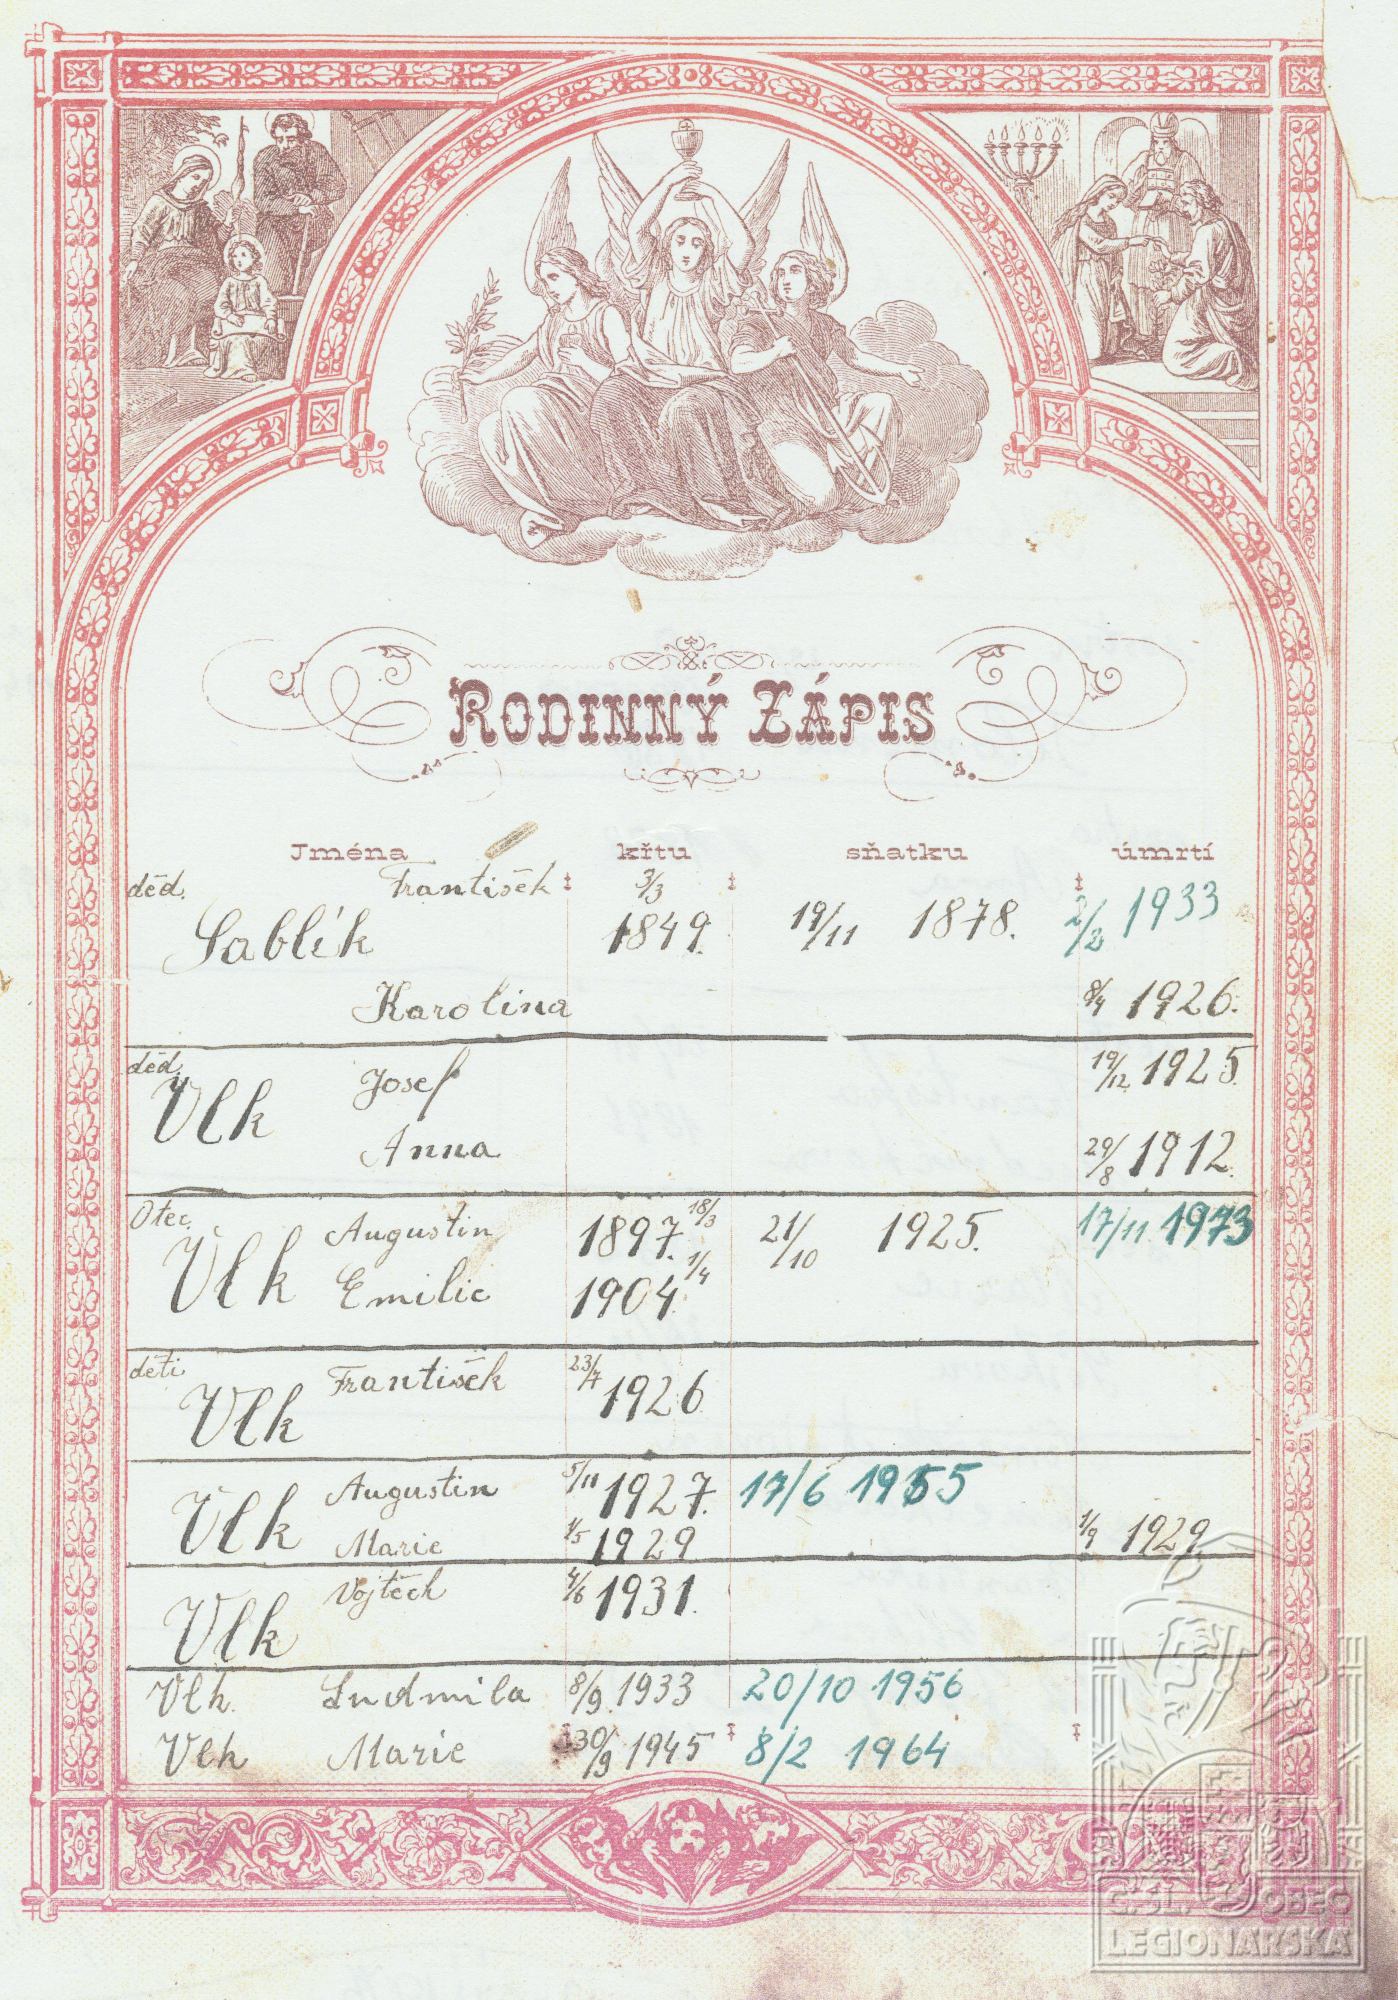 RODINNÝ ZÁPIS
Jména křtu sňatku úmrtí
děd. František 3/3 2/2 1933
Sablík 1849. 19/11 1878.
Karolina 8/4 1926.
děd. Josef 19/12 1925.
Vlk
Anna 29/8 1912.
Otec. Augustin 1897. 18/3 21/10 1925. 17/11 1973
Vlk Emilie 1904. 1/4
děti František 23/7 1926.
Vlk
Augustin 5/11 1927. 17/6 1955
Vlk
Marie 1/5 1929 1/9 1929
Vojtěch 4/6 1931.
Vlk
Vlk. Ludmila 8/9. 1933 20/10 1956
Vlk Marie 30/9 1945 8/2 1964
Č.SL. OBEC
LEGIONÁŘSKÁ